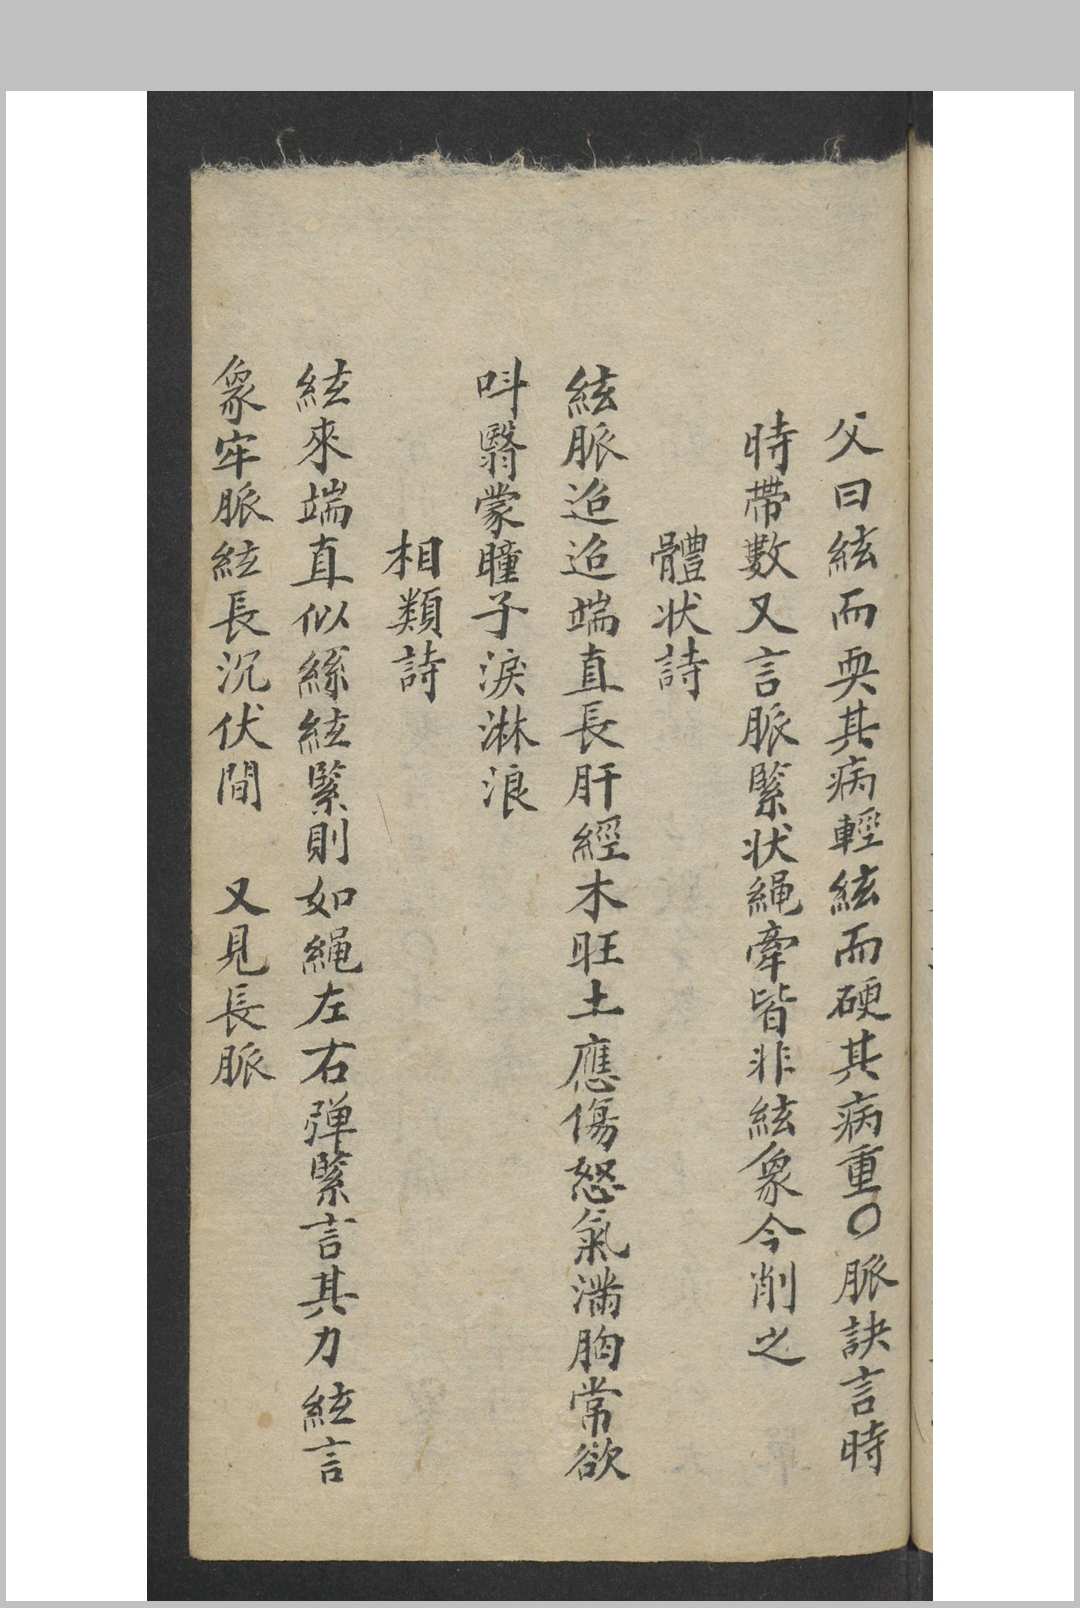 父曰絃而耎其病輕絃而硬其病重〇脈訣言時
時帶數又言脈緊状繩牽皆非絃象今削之
體状詩
絃脈迢迢端直長肝經木旺土應傷怒氣滿胸常欲
呌翳蒙瞳子淚淋浪
相類詩
絃來端直似絲絃緊則如繩左右弹緊言其力絃言
象牢脈絃長沉伏間　又見長脈